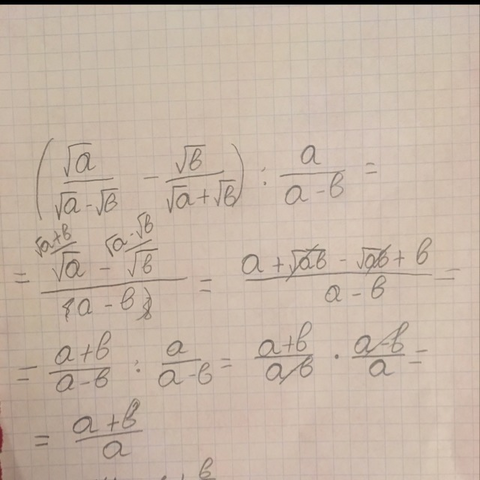 (√a/(√a-√b) - √b/(√a+√b)) : a/(a-b) =
= (√a+b/ √a - √a-√b/ √b)/(a-b) = (a+√ab-√ab+b)/(a-b) =
= (a+b)/(a-b) : a/(a-b) = (a+b)/(a-b) · (a-b)/a =
= (a+b)/a